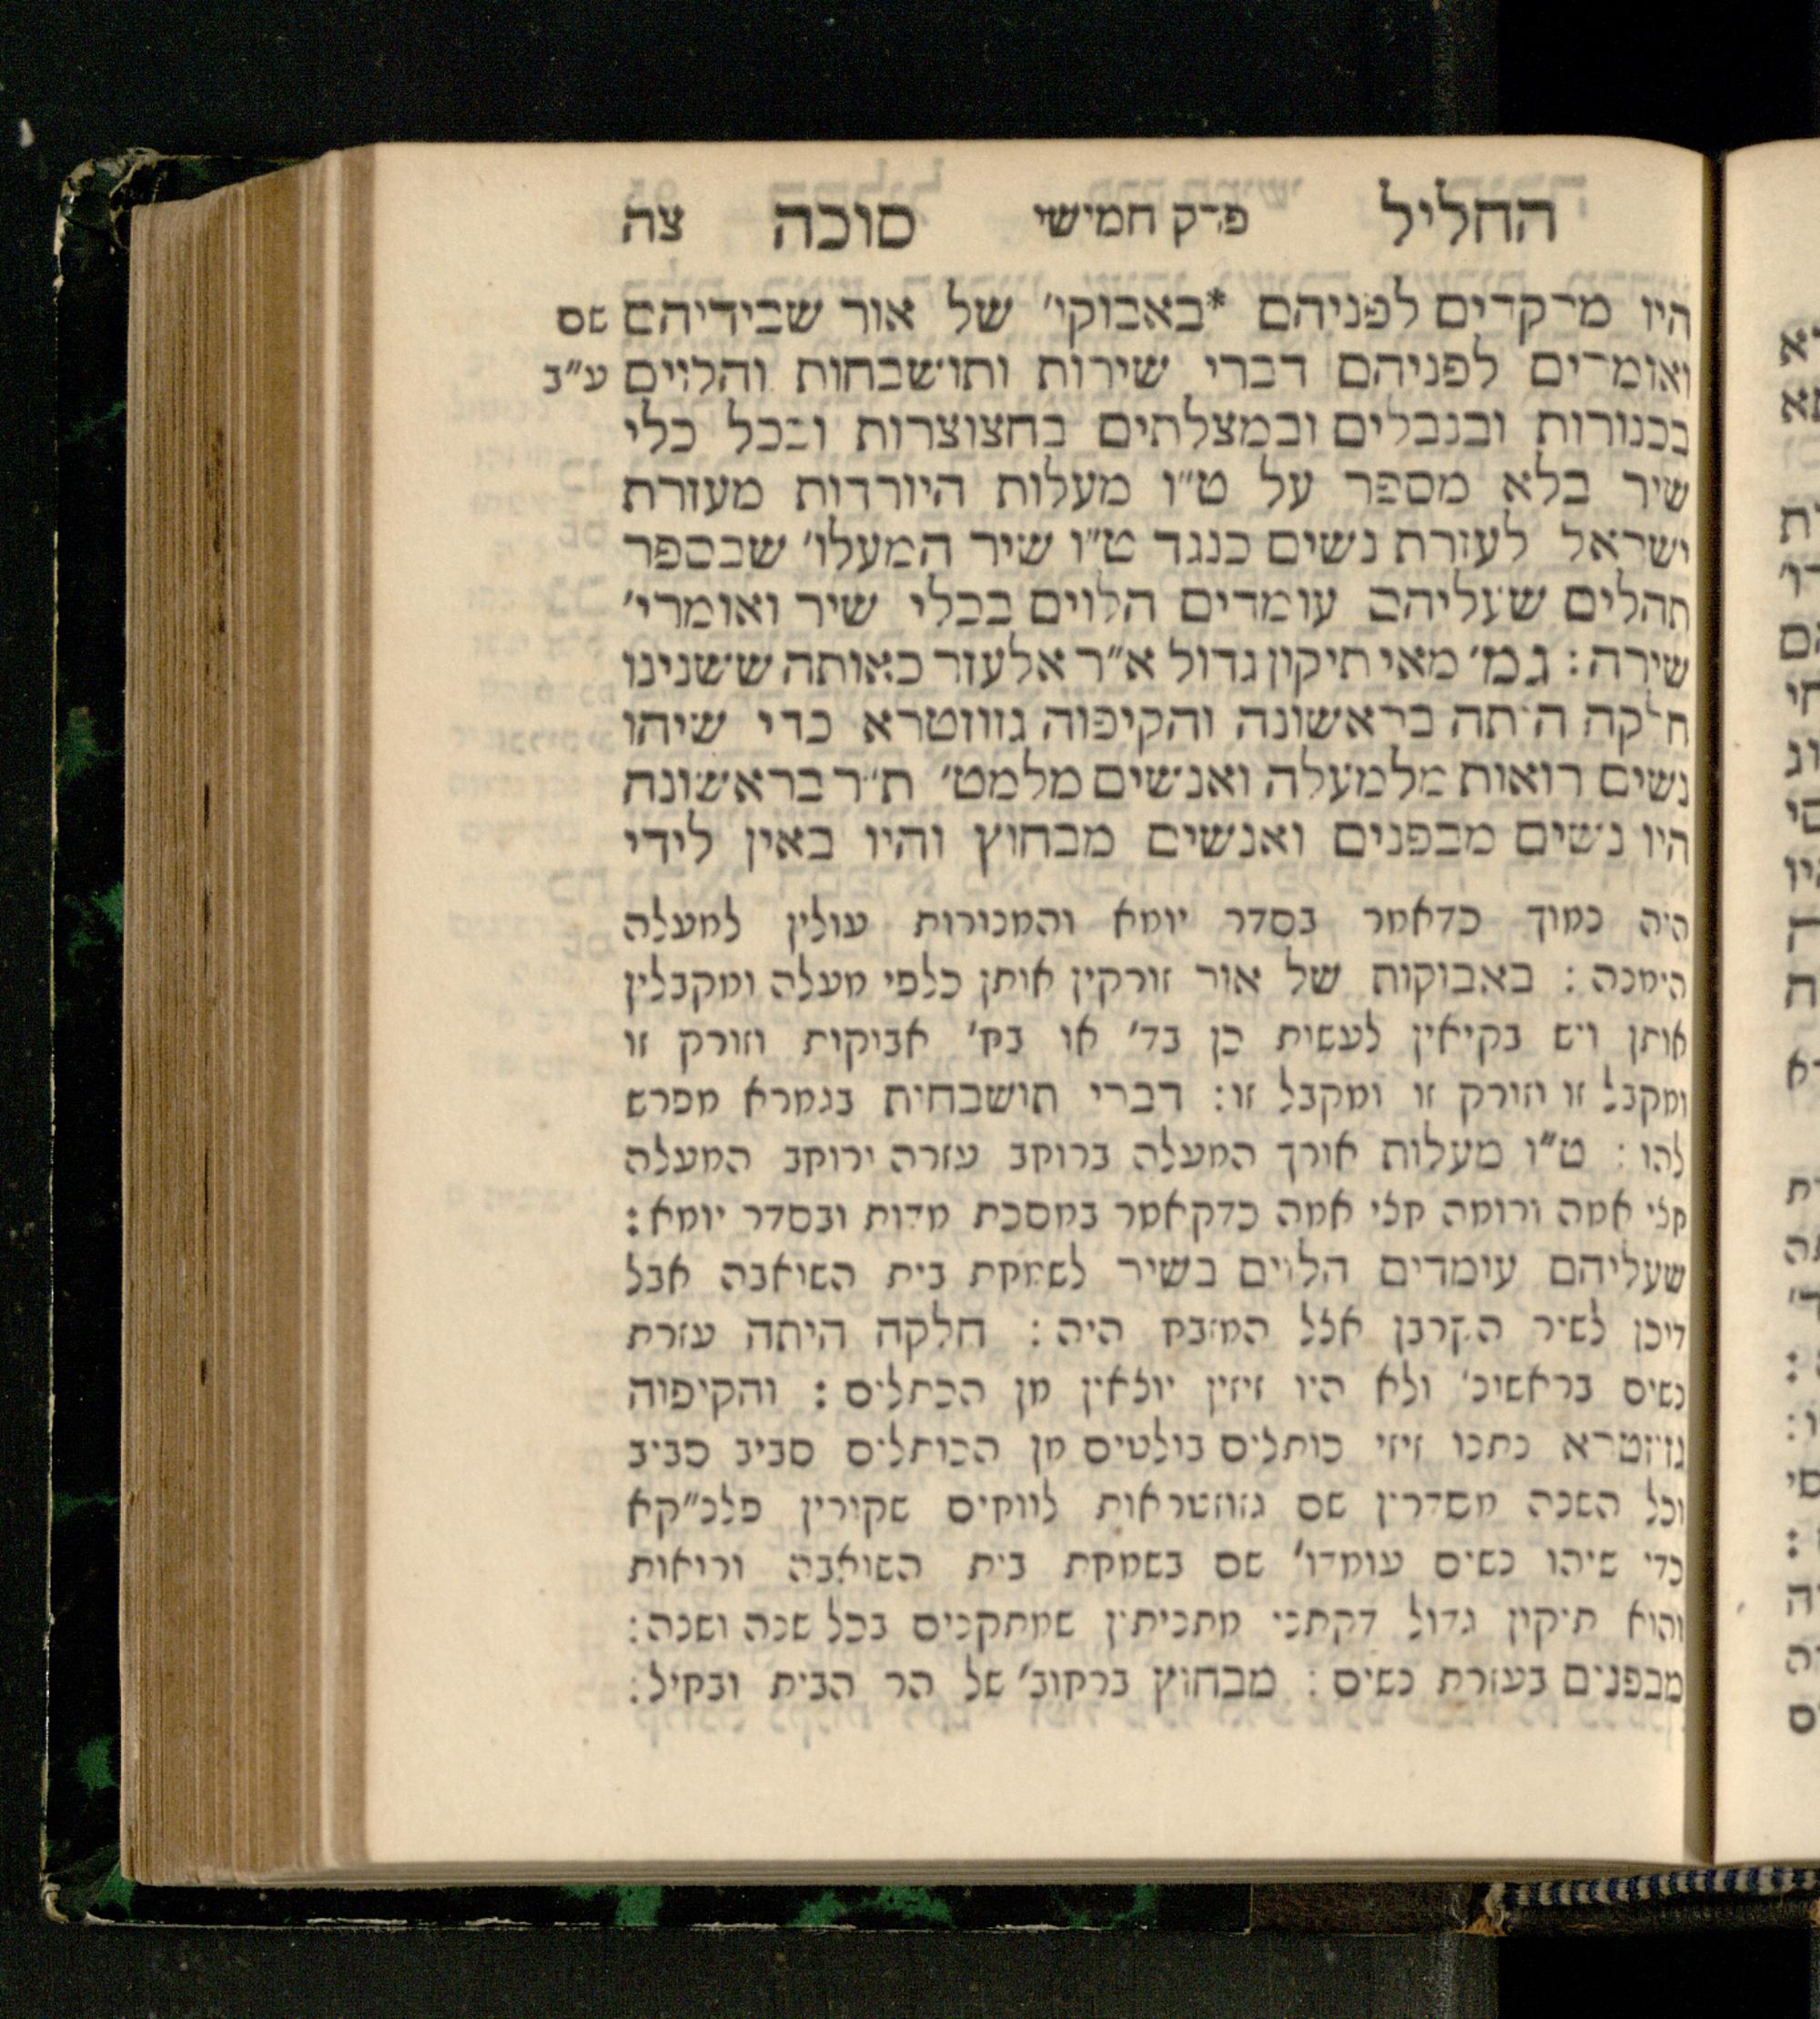 החליל פרק חמישי סוכה צה
היו מרקדים לפניהם *באבוקי׳ של אור שבידיהם שם
ואומרים לפניהם דברי שירות ותושבחות והלוים ע״ב
בכנורות ובנבלים ובמצלתים בחצוצרות ובכל כלי
שיר בלא מספר על ט״ו מעלות היורדות מעזרת
ישראל לעזרת נשים כנגד ט״ו שיר המעלו׳ שבספר
תהלים שעליהם עומדים הלוים בכלי שיר ואומרי׳
שירה: גמ׳ מאי תיקון גדול א״ר אלעזר כאותה ששנינו
חלקה היתה בראשונה והקיפוה גזוזטרא כדי שיהו
נשים רואות מלמעלה ואנשים מלמט׳ ת״ר בראשונה
היו נשים מבפנים ואנשים מבחוץ והיו באין לידי
היה נמוך כדאמר בסדר יומא והמנורות עולין למעלה
הימנה: באבוקות של אור זורקין אותן כלפי מעלה ומקבלין
אותן ויש בקיאין לעשות כן בד׳ או בח׳ אבוקות וזורק זו
ומקבל זו וזורק זו ומקבל זו: דברי תושבחות בגמרא מפרש
להו: ט״ו מעלות אורך המעלה ברוחב עזרה ורוחב המעלה
חצי אמה ורומה חצי אמה כדקאמר במסכת מדות ובסדר יומא:
שעליהם עומדים הלוים בשיר לשמחת בית השואבה אבל
דוכן לשיר הקרבן אצל המזבח היה: חלקה היתה עזרת
נשים בראשונ׳ ולא היו זיזין יוצאין מן הכתלים: והקיפוה
גזוזטרא נתנו זיזי כותלים בולטים מן הכותלים סביב סביב
וכל השנה מסדרין שם גזוזטראות לווחים שקורין פלנ״קא
כדי שיהו נשים עומדו׳ שם בשמחת בית השואבה ורואות
והוא תיקון גדול דקתני מתניתין שמתקנים בכל שנה ושנה:
מבפנים בעזרת נשים: מבחוץ ברחוב׳ של הר הבית ובחיל: